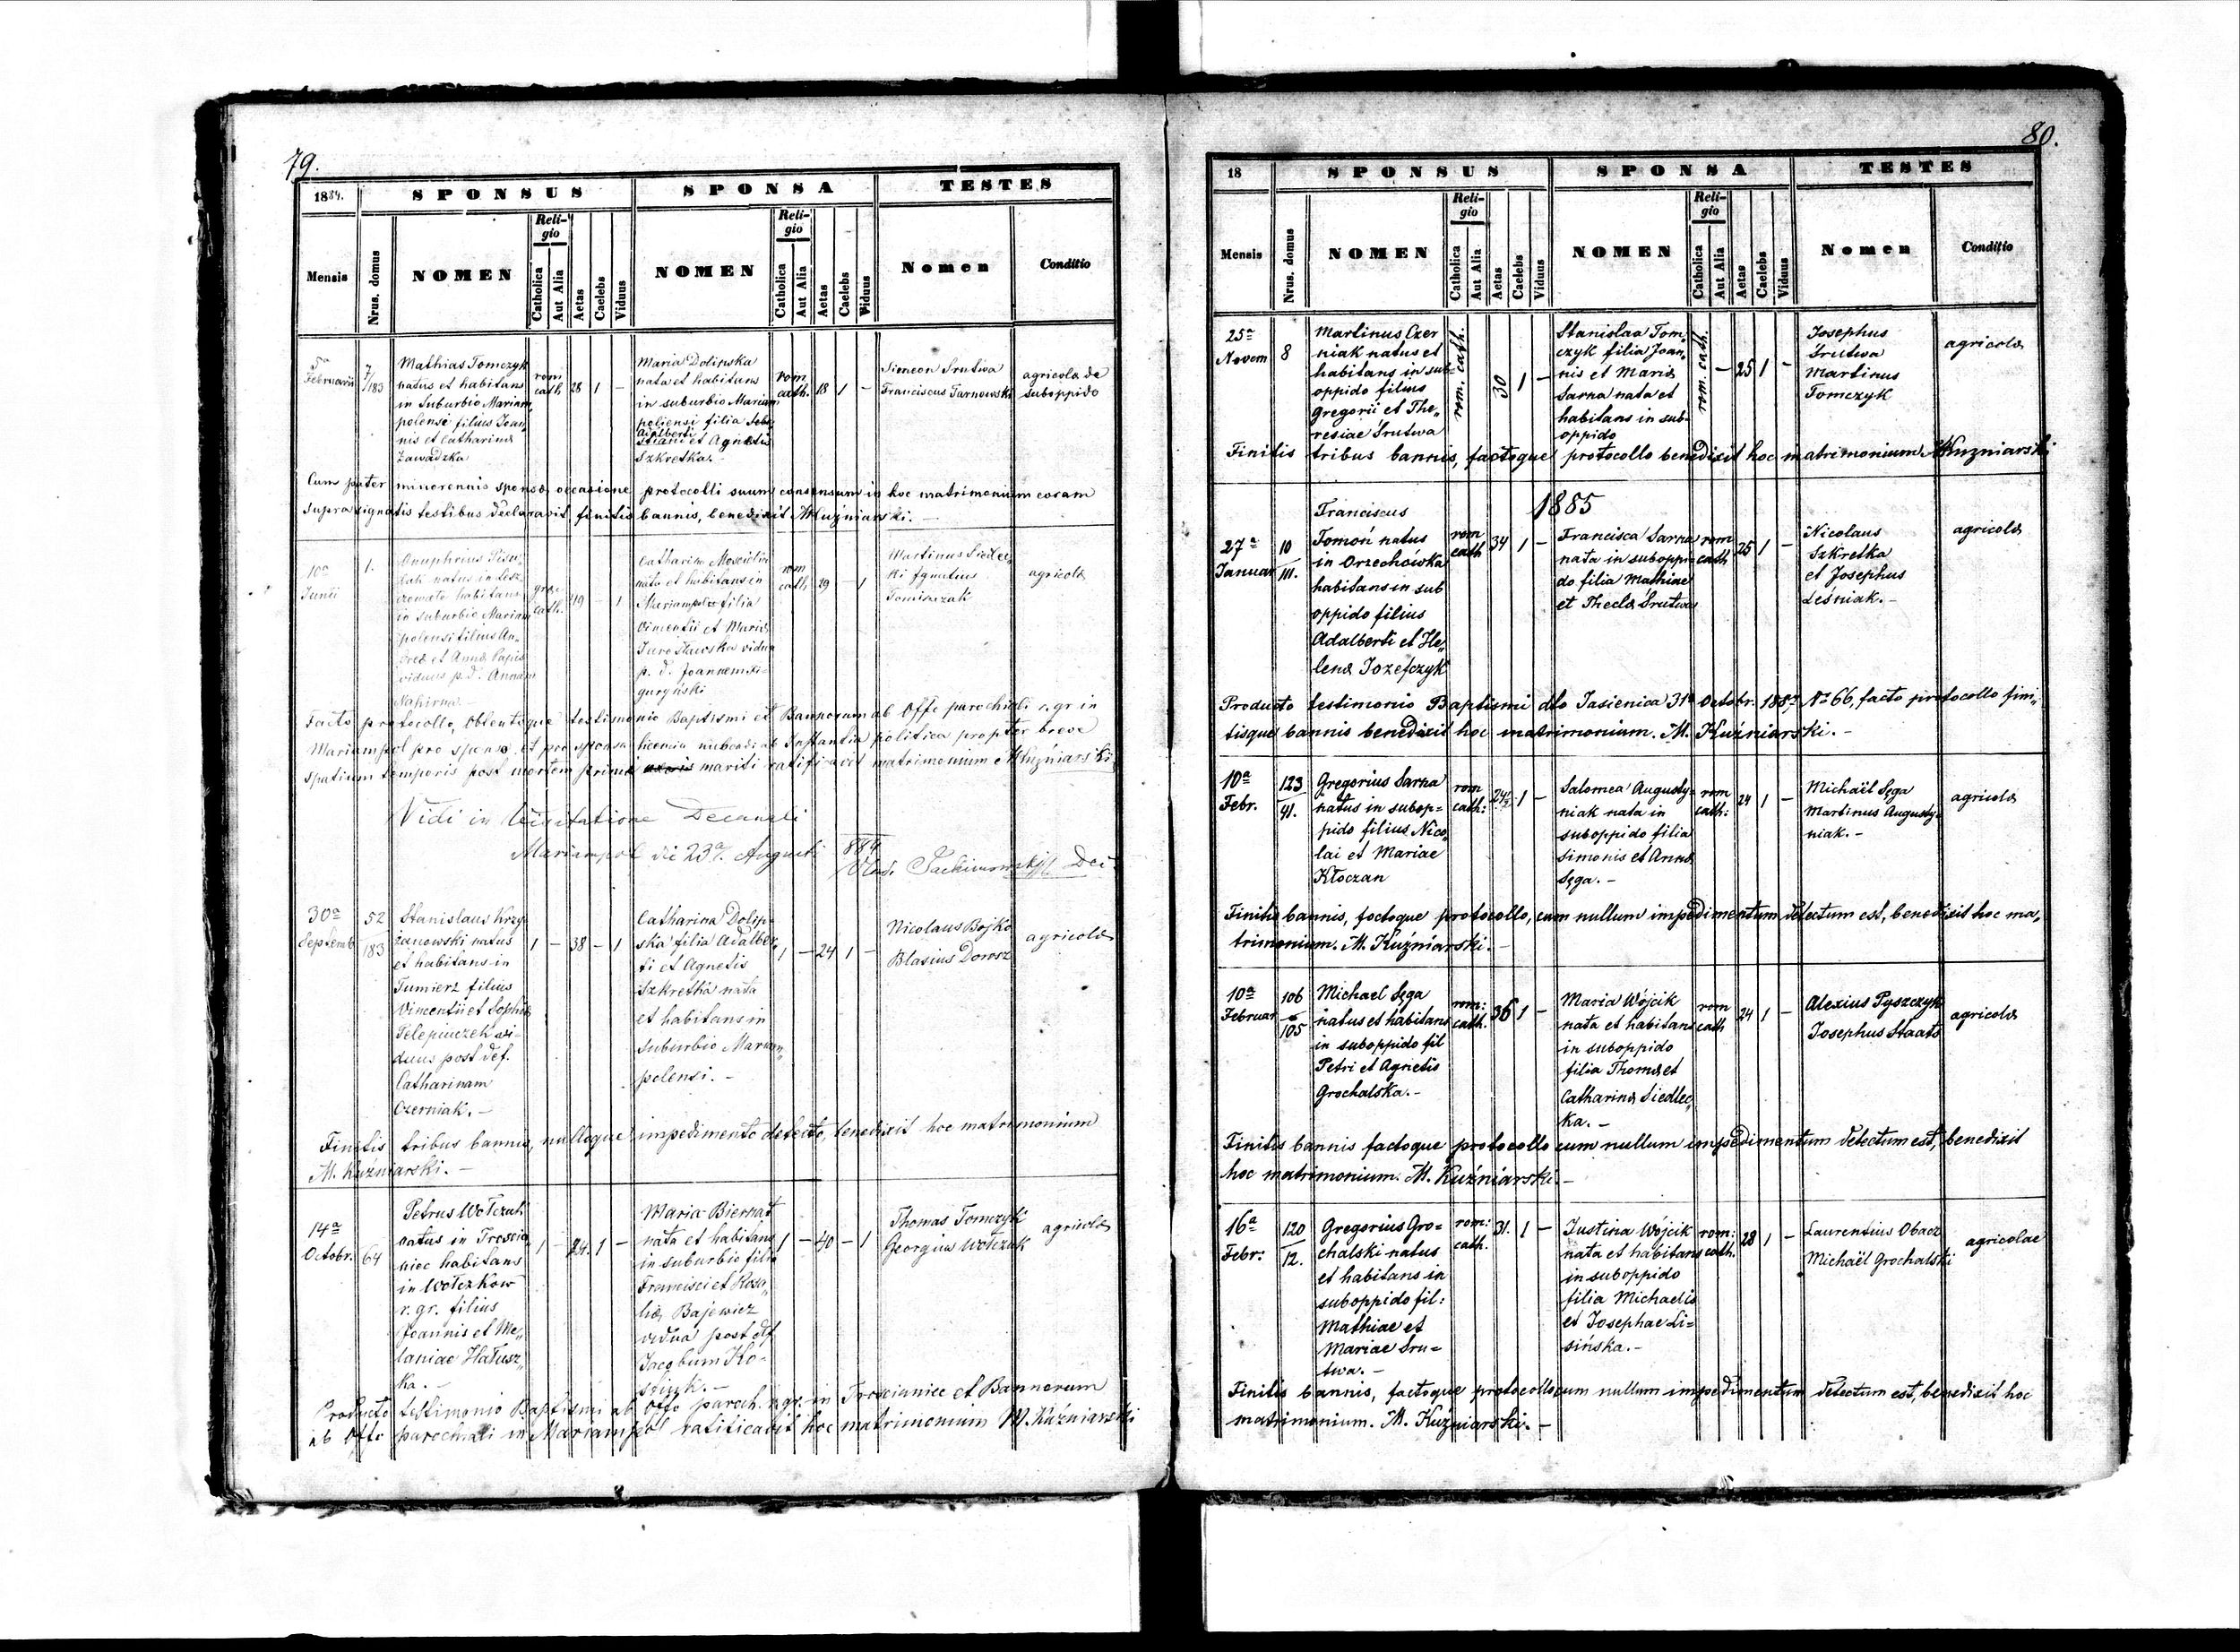 79.
1884.
SPONSUS
SPONSA
TESTES
Mensis
Nrus. domus
NOMEN
Religio
Catholica
Aut Alia
Aetas
Caelebs
Viduus
NOMEN
Religio
Catholica
Aut Alia
Aetas
Caelebs
Viduus
Nomen
Conditio
5a
Februarii
7/183
Mathias Tomczyk
natus et habitans
in Suburbio Mariam„
polensi filius Joan„
nis et Catharinæ
Zawadzka
rom
cath
28
1
–
Maria Dolinska
nata et habitans
in suburbio Mariam
poliensi filia
Adalberti
et Agnetis
Szkretka.-
rom
cath.
18
1
–
Simeon Srutwa
Franciscus Tarnowski
agricolæ de
suboppido
Cum pater minorennis sponsæ occasione protocolli suum consensum in hoc matrimonium coram
supra signatis testibus declaravit, finitis bannis, benedixit M Kuźniarski.-
10a
Junii
1.
natus in
habitans
in suburbio Mariam
polensi filius An„
et Annæ
viduus p. d. Annam
cath.
49
–
1
Catharina
nata et habitans in
Mariampol filia
Vincentii et Mariæ
Jarosławska vidua
p. d. Joannem
rom
cath
29
–
1
Martinus Siedlec
ki Ignatius
Tomiszczak
agricolæ
Facto protocollo, Obtentoque testimonio Baptismi et Bannorum ab Offo parochiali r. gr. in
Mariampol pro sponso et pro sponsa licentia nubendi ab Instantia politica propter breve
spatium temporis post mortem primi mariti ratificavit matrimonium M Kuźniarski
Vidi in Visitatione Decanali
Mariampol die 23a Augusti 884
30a
Septemb
52
183
Stanislaus Krzy
żanowski natus
et habitans in
Tumierz filius
Vincentii et Sophiæ
duus post def.
Catharinam
Czerniak.-
1
–
38
–
1
Catharina Dolin„
ska filia Adalber„
ti et Agnetis
Szkretka nata
et habitans in
suburbio Mariam„
polensi.-
1
–
24
1
–
Nicolaus Bojko
Blasius Dorosz
agricolæ
Finitis tribus bannis, nulloque impedimento detecto, benedixit hoc matrimonium
M. Kuźniarski.-
14a
Octobr.
64
Petrus Wołczak
natus in Troscia„
niec habitans
in Wołczkow
r. gr. filius
Joannis et Me„
laniae Hałusz„
ka.-
1
–
24.
1
–
Maria Biernat
nata et habitans
in suburbio filia
Francisci et Rosa„
liæ Bajewicz
vidua post def
Jacobum
1
–
40
–
1
Thomas Tomczyk
Georgius Wołczak
agricolæ
Producto testimonio Baptismi ab Offo paroch. r. gr. in Trościaniec et Bannorum
ab Offo parochiali in Mariampol ratificavit hoc matrimonium M. Kuźniarski
80.
18
SPONSUS
SPONSA
TESTES
Mensis
Nrus. domus
NOMEN
Religio
Catholica
Aut Alia
Aetas
Caelebs
Viduus
NOMEN
Religio
Catholica
Aut Alia
Aetas
Caelebs
Viduus
Nomen
Conditio
25a
Novem
8
Martinus Czer
niak natus et
habitans in sub-
oppido filius
Gregorii et The„
resiae Srutwa
rom. cath.
30
1
–
Stanislaa Tom„
czyk filia Joan„
nis et Mariæ
Sarna nata et
habitans in sub-
oppido
rom. cath.
–
25
1
–
Josephus
Srutwa
Martinus
Tomczyk
agricolæ
Finitis tribus bannis, factoque protocollo benedixit hoc matrimonium MKuzniarski
1885
27a
Januar
10
111.
Franciscus
Tomoń natus
in Orzechówka
habitans in sub
oppido filius
Adalberti et He„
lenæ Jozefczyk
rom
cath
34
1
–
Francisca Sarna
nata in suboppi-
do filia Mathiae
et Theclæ Srutwa
rom
cath
25
1
–
Nicolaus
Szkretka
et Josephus
Leśniak.-
agricolæ
Producto testimonio Baptismi dto Jasienica 31a Octobr. 188 No 66, facto protocollo fini„
tisque bannis benedixit hoc matrimonium. M. Kuźniarski.-
10a
Febr.
123
41.
Gregorius Sarna
natus in subop=
pido filius Nico„
lai et Mariae
Kłoczan
rom
cath:
24½
1
–
Salomea Augusty-
niak nata in
suboppido filia
Simonis et Annæ
Sęga.-
rom
cath:
24
1
–
Michaël Sęga
Martinus Augusty-
niak.-
agricolæ
Finitis bannis, factoque protocollo, cum nullum impedimentum detectum est, benedixit hoc ma„
trimonium. M. Kuźniarski.-
10a
Februar
106
105
Michael Sęga
natus et habitans
in suboppido fil
Petri et Agnetis
Grochalska.-
rom:
cath.
36
1
–
Maria Wójcik
nata et habitans
in suboppido
filia Thomæ et
Catharinæ Siedlec„
ka.-
rom
cath
24
1
–
Alexius Pyszczyk
Josephus Staats
agricolæ
Finitis bannis factoque protocollo cum nullum impedimentum detectum est, benedixit
hoc matrimonium. M. Kuźniarski.-
16a
Febr:
120
12.
Gregorius Gro=
chalski natus
et habitans in
suboppido fil:
Mathiae et
Mariae Sru=
twa.-
rom:
cath.
31.
1
–
Justina Wójcik
nata et habitans
in suboppido
filia Michaelis
et Josephae Li=
sińska.-
rom:
cath.
28
1
–
Laurentius Obacz
Michaël Grochalski
agricolae
Finitis bannis, factoque protocollo cum nullum impedimentum detectum est, benedixit hoc
matrimonium. M. Kuźniarski.-